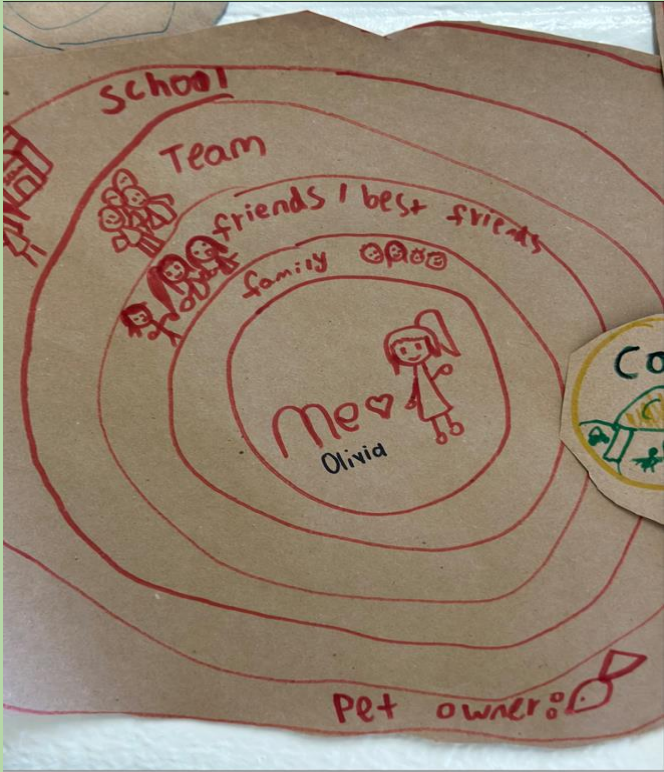 School
Team
friends / best friends
family
Me
Olivia
Co
Pet owner: